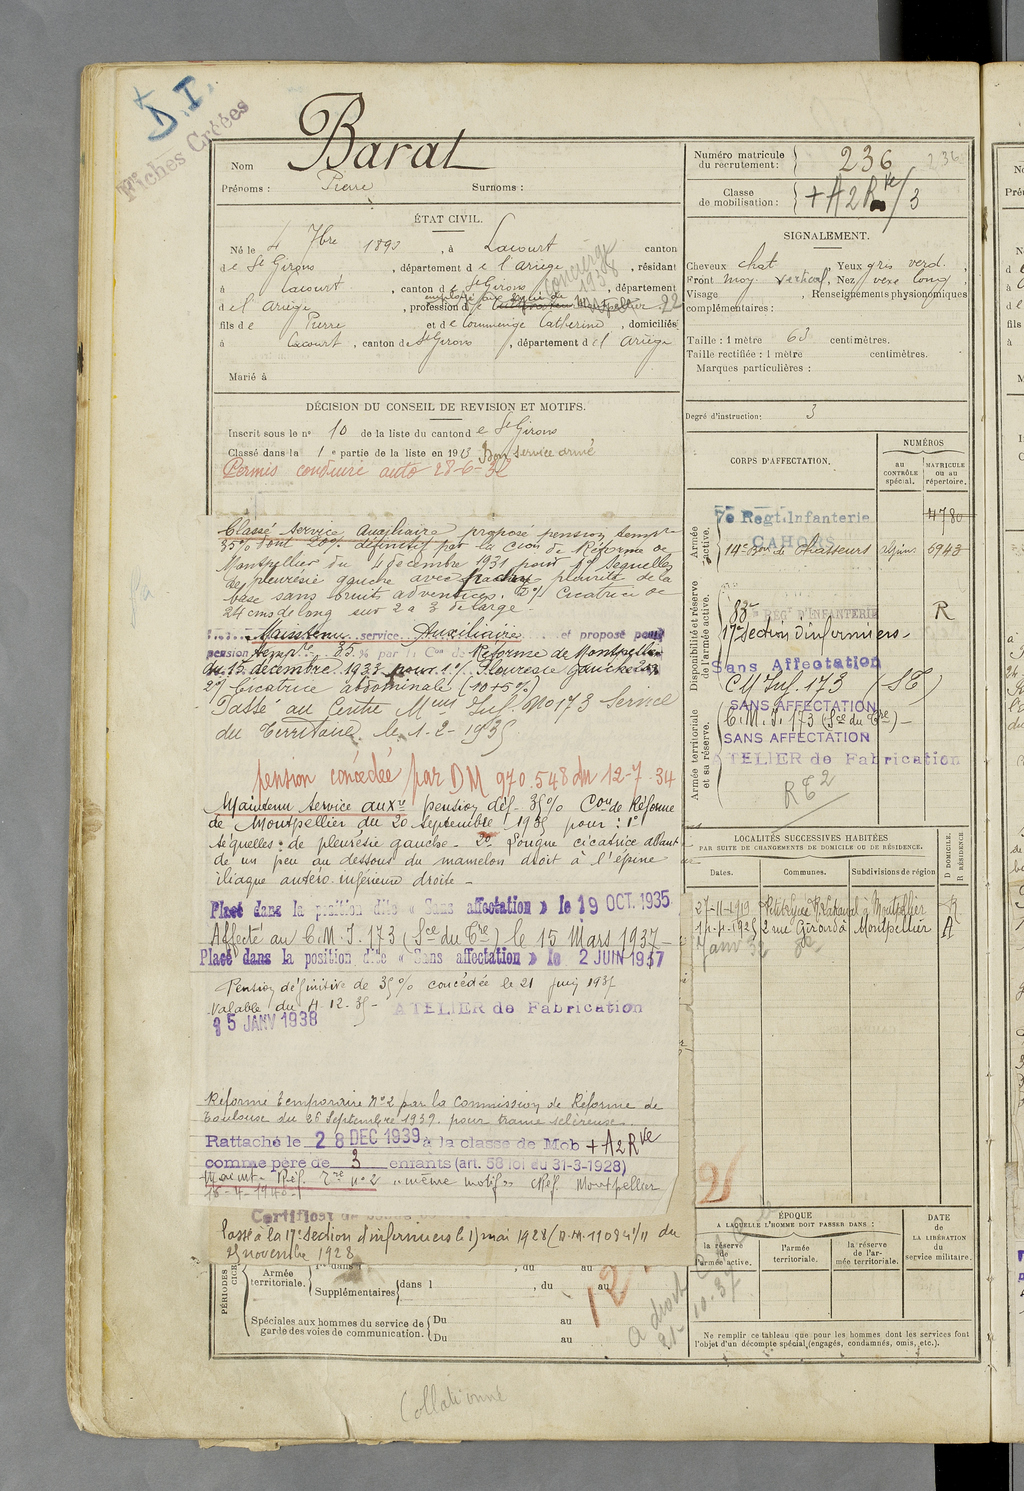 + D.I.
Fiches Créées
Nom Barat
Prénoms : Pierre Surnoms :
ÉTAT CIVIL.
Né le 4 7bre 1893, à Lacourt canton
de St Girons, département de l'Ariège, résidant
à Lacourt, canton de St Girons, département
concierge 1938
employé aux
del Ariège, profession de Montpellier 22
fils de Pierre et de Commenge Catherine, domiciliés
à Lacourt, canton de St Girons, département del Ariège
Marié à
DÉCISION DU CONSEIL DE REVISION ET MOTIFS.
Inscrit sous le no 10 de la liste du canton de St Girons
Classé dans la 1e partie de la liste en 1913 Bon service armé
Permis conduire auto 28-6-32
Classé service Auxiliaire proposé pension tempre
35% dont 20% définitif par la Cion de Réforme de
Montpellier du 4 décembre 1931 pour 1o Sequelles
de pleurésie gauche avec pleurite de la
base sans bruits adventices. 2o/ Cicatrice de
24 cms de long sur 2 à 3 de large.
Maintenu service Auxiliaire et proposé pour
pension tempre 35 % par la Con de Réforme de Montpellier
du 15 décembre 1933 pour 1o/ Pleurésie gauche
2o/ Cicatrice abdominale (10+5%)
Passé au Centre Mum Inf. No 173 Service
du Territoire le 1-2-1935
pension concédée par DM 970.548 du 12-7-34
Maintenu service auxre pension déf- 35% Con de Réforme
de Montpellier du 20 septembre 1935 pour : 1o
séquelles de pleurésie gauche - 2o Longue cicatrice allant
de un peu au dessous du mamelon droit à l'épine
iliaque antéro inférieure droite -
Placé dans la position dite « Sans affectation » le 19 OCT. 1935
Affecté au C.M.I. 173 (Sce du Tre) le 15 Mars 1937-
Placé dans la position dite « Sans affectation » le 2 JUIN 1937
Pension définitive de 35% concédée le 21 juin 1937
valable du 4-12-35-
ATELIER de Fabrication
5 JANV 1938
Réforme temporaire no 2 par la Commission de Réforme de
Toulouse du 26 Septembre 1939 pour trame scléreuse.
Rattaché le 28 DEC 1939 à la classe de Mob + A2Rve
comme père de 3 enfants (art. 58 loi du 31-3-1928)
Maint. Réf. Tre no 2 "même motif" CRéf. Montpellier
18-4-1940
Certificat de
Passé à la 17e Section d'infirmiers le 1) mai 1928 (D.M. 11084 1/11 du
2) novembre 1928
PÉRIODES
Armée territoriale. dans l
Supplémentaires dans l , du au
Spéciales aux hommes du service de garde des voies de communication. Du au
Du au
12
à droit
21-10-37
Collationné
Numéro matricule du recrutement : 236 236
Classe de mobilisation : + A2Rve/3
SIGNALEMENT.
Cheveux chat, Yeux gris verd.,
Front moy. vertical, Nez vexe long,
Visage , Renseignements physionomiques
complémentaires :
Taille : 1 mètre 63 centimètres.
Taille rectifiée : 1 mètre centimètres.
Marques particulières :
Degré d'instruction : 3
CORPS D'AFFECTATION.
NUMÉROS
au CONTRÔLE spécial.
MATRICULE ou au répertoire.
Armée active.
7e Regt. Infanterie
CAHORS
4780
14e Bon de Chasseurs alpins 5943
Disponibilité et réserve de l'armée active.
83e REGt D'INFANTERIE R
17e Section d'infirmiers-
Sans Affectation
CM Inf. 173 (ST)
Armée territoriale et sa réserve.
SANS AFFECTATION
C.M.I. 173 (Sce du Tre)-
SANS AFFECTATION
ATELIER de Fabrication
RT2
LOCALITÉS SUCCESSIVES HABITÉES
PAR SUITE DE CHANGEMENTS DE DOMICILE OU DE RÉSIDENCE.
D DOMICILE. R RÉSIDENCE
Dates. Communes. Subdivisions de région
27-11-1919 Petit Lycée à Montpellier R
14-4-1925 2 rue Girorda Montpellier A
Janv 32 do
ÉPOQUE
A LAQUELLE L'HOMME DOIT PASSER DANS :
la réserve de l'armée active.
l'armée territoriale.
la réserve de l'armée territoriale.
DATE
DE
LA LIBÉRATION
du
service militaire.
Ne remplir ce tableau que pour les hommes dont les services font
l'objet d'un décompte spécial (engagés, condamnés, omis, etc.).